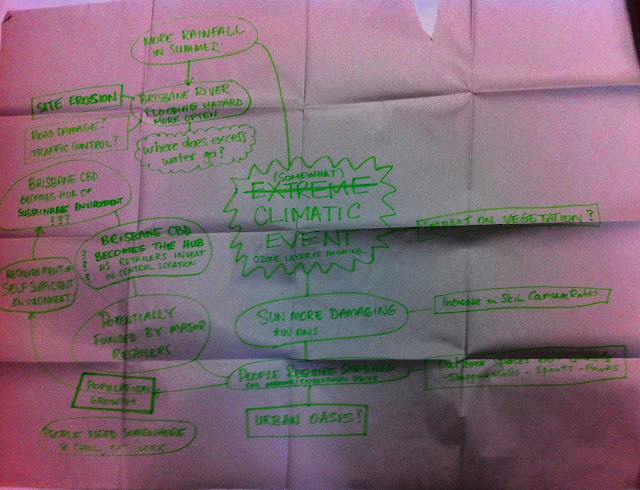 MORE RAINFALL
IN SUMMER
SITE EROSION
BRISBANE RIVER
FLOODING HAZARD
MORE OFTEN
ROAD DAMAGE?
TRAFFIC CONTROL?
where does excess
water go?
BRISBANE CBD
BECOMES HUB OF
SUSTAINABLE ENVIROMENT
???
(SOMEWHAT)
EXTREME
CLIMATIC
EVENT
OZONE LAYER IS THINNING
IMPACT ON VEGETATION?
BRISBANE CBD
? BECOMES THE HUB
? AS RETAILERS INVEST
? IN CENTRAL LOCATION
SELF SUFFICIENT
ENVIROMENT
POTENTIALLY
FUNDED BY MAJOR
RETAILERS
SUN MORE DAMAGING
Increase in Skin Cancer Rates
PEOPLE REQUIRE SHADING
- Shopping Malls - Sports - Parks
POPULATION
GROWTH
URBAN OASIS?
PEOPLE NEED SOMEWHERE